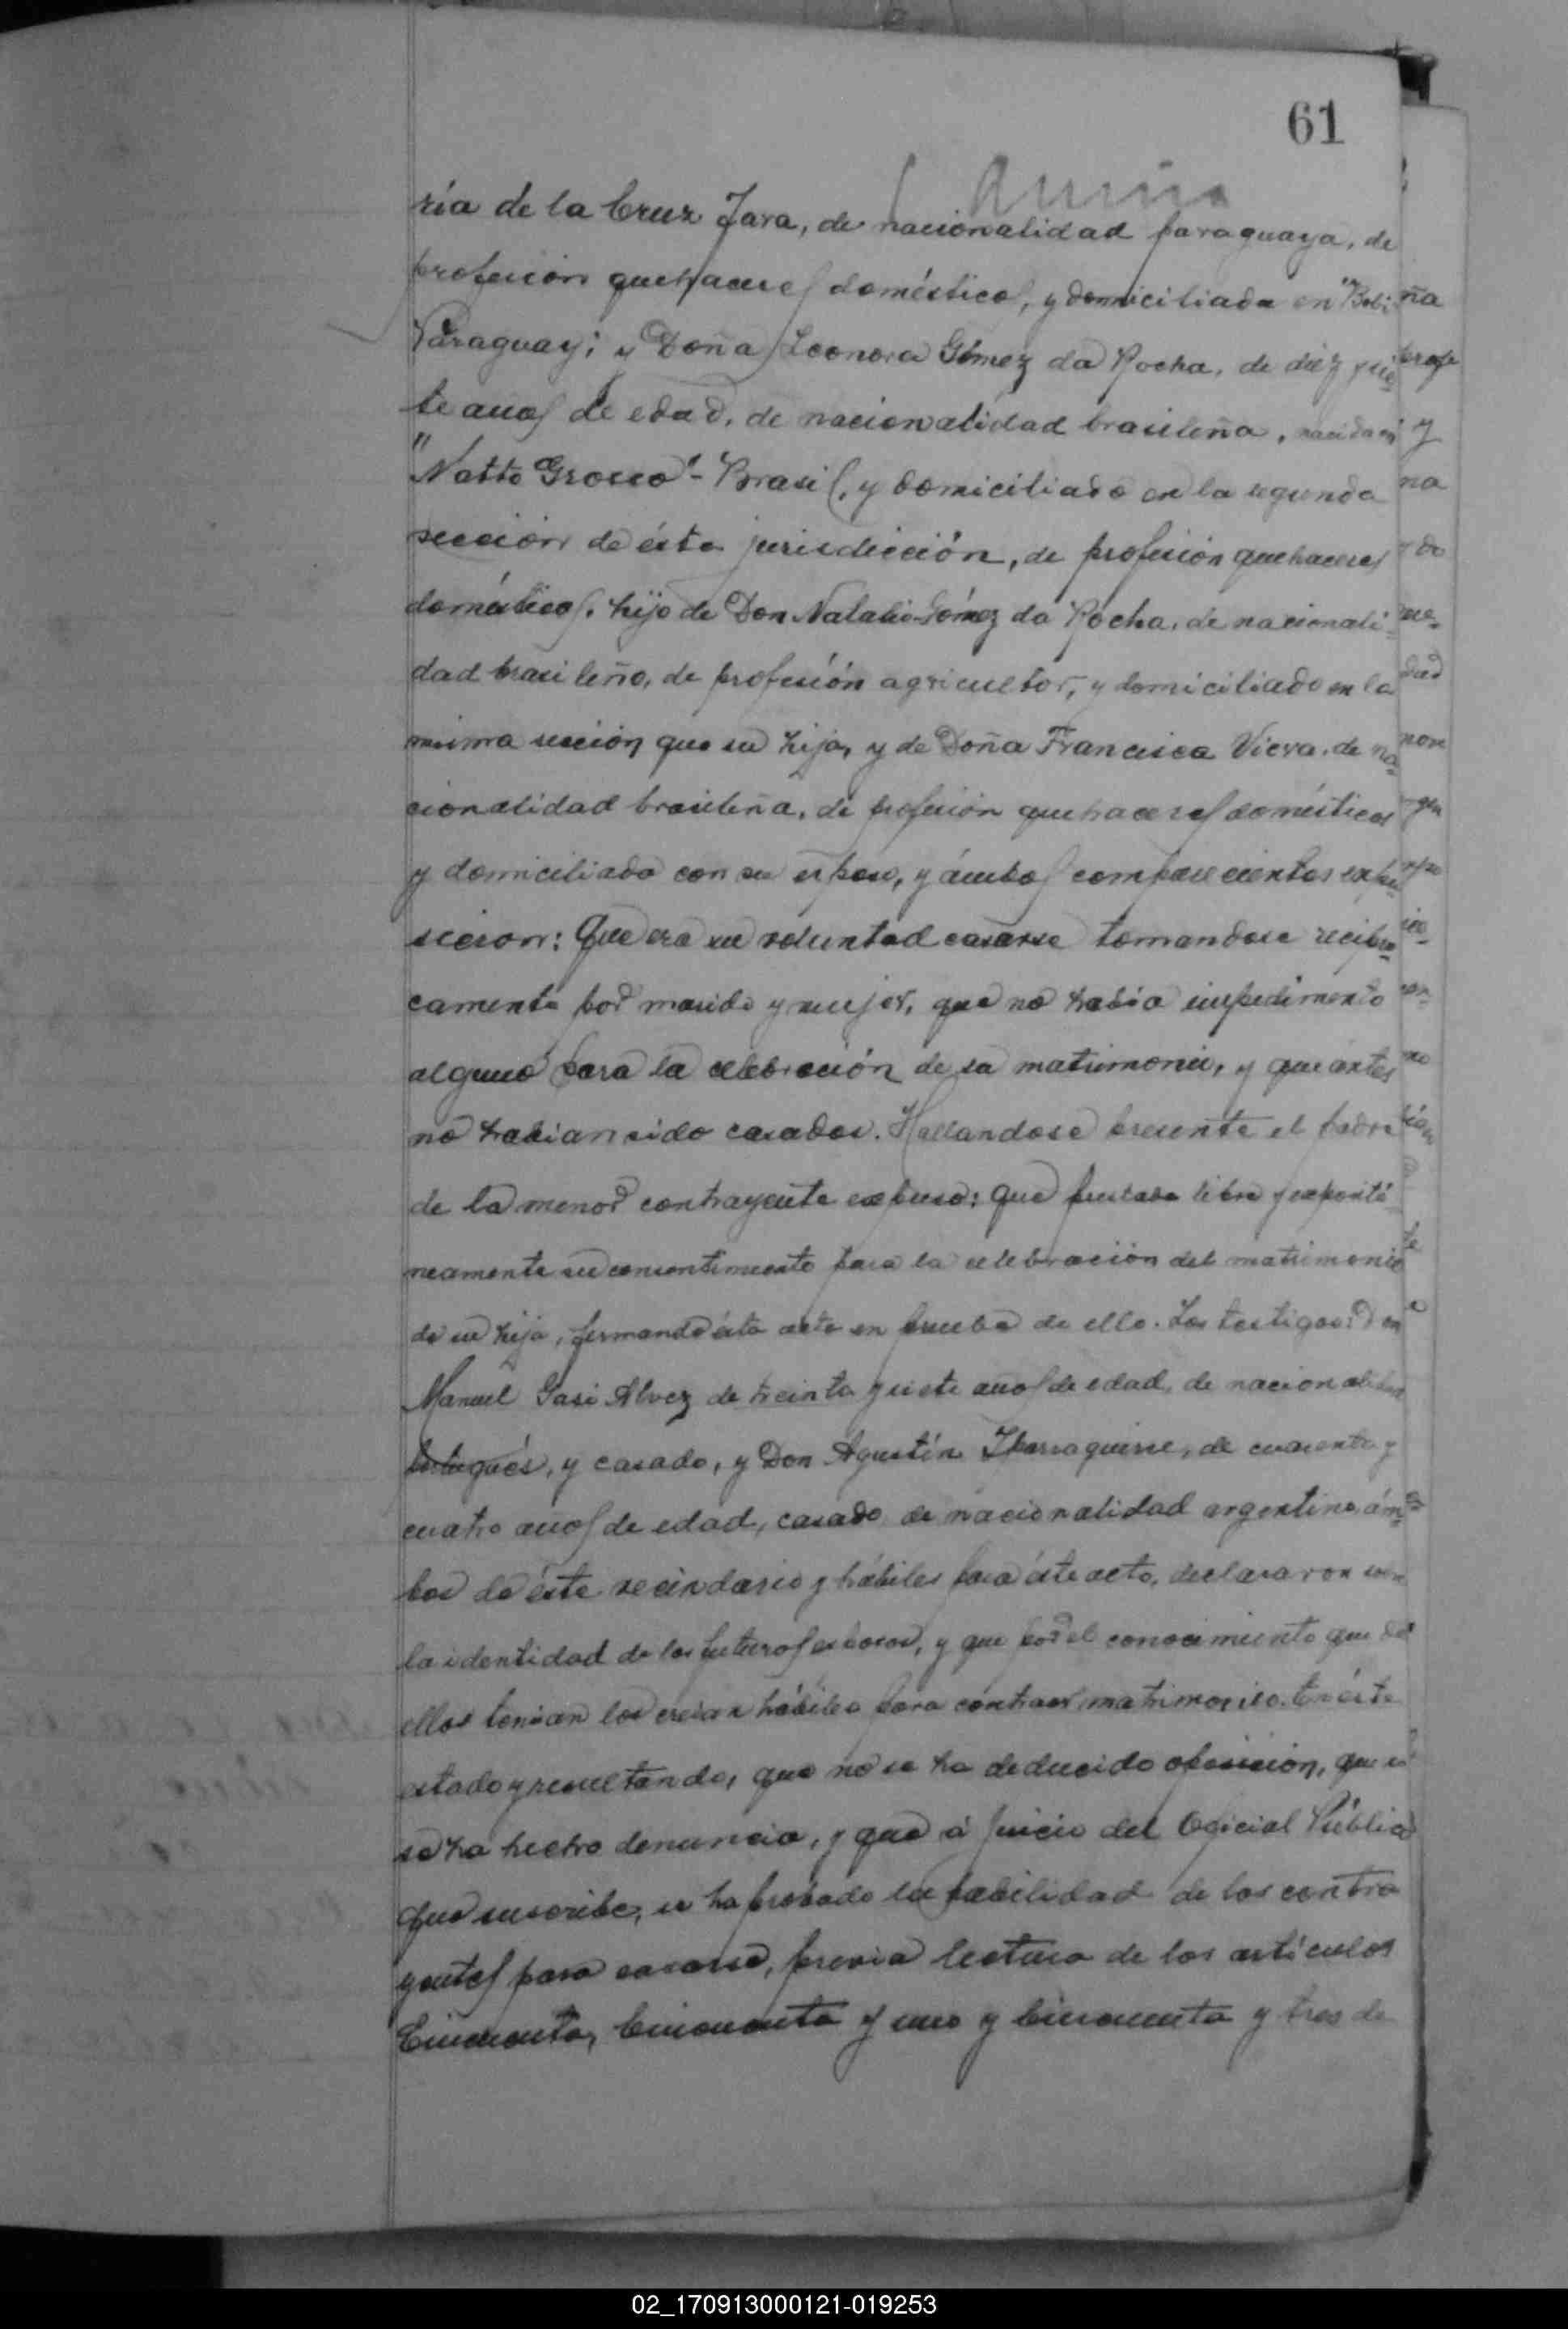 61
ría de la Cruz Jara, de nacionalidad paraguaya, de
profesión quehaceres domésticos, y domiciliada en "Bobi"
Paraguay; y Doña Leonora Gómez da Rocha, de diez y sie-
te años de edad, de nacionalidad brasileña, nacida en
"Matto Grosso" - Brasil, y domiciliado en la segunda
sección de ésta jurisdicción, de profesión quehaceres
domésticos, hijo de Don Natalio Gómez da Rocha, de nacionali-
dad brasileño, de profesión agricultor, y domiciliado en la
misma sección que su hija, y de Doña Francisca Viera, de na-
cionalidad brasileña, de profesión quehaceres domésticos
y domiciliada con su esposo, y ámbos comparecientes expu-
sieron: Que era su voluntad casarse tomandose recipro-
camente por marido y mujer, que no había impedimento
alguno para la celebración de su matrimonio, y que antes
no habian sido casados. Hallandose presente el padre
de la menor contrayente expuso: que prestaba libre y espontá-
neamente su consentimiento para la celebración del matrimonio
de su hija, firmando ésta acta en prueba de ello. Los testigos: Don
Manuel Alvez de treinta y siete años de edad, de nacionalidad
portugués, y casado, y Don Agustín Ibarraguirre, de cuarenta y
cuatro años de edad, casado de nacionalidad argentino, ám-
bos de éste vecindario y hábiles para éste acto, declararon sobre
la identidad de los futuros esposos, y que por el conocimiento que de
ellos tenian los creian hábiles para contraer matrimonio. En éste
estado y resultando, que no se ha deducido oposición, que no
se ha hecho denuncia, y que á juicio del Oficial Público
que suscribe, se ha probado la habilidad de los contra
yentes para casarse, previa lectura de los artículos
Cincuenta, Cincuenta y uno y Cincuenta y tres de
ña
profe
y
na
y do
dad
02_170913000121-019253